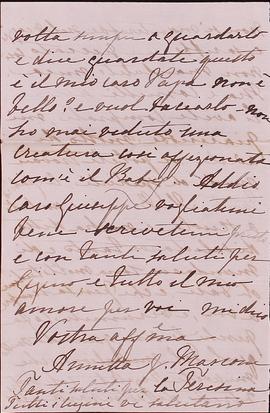 volta a guardarlo
e dice guardate questo
è il mio caro Papà non è
bello? e vuol baciarlo non
ho mai veduto una
creatura così affezionata
com'è il Baby. Addio
caro Giuseppe vogliatemi
bene scrivetemi
e con tanti saluti per
Gigino, e tutto il mio
amore per voi mi dico
Vostra affma
Annetta
Tanti saluti per la Teresina
Tutti i cugini vi salutano